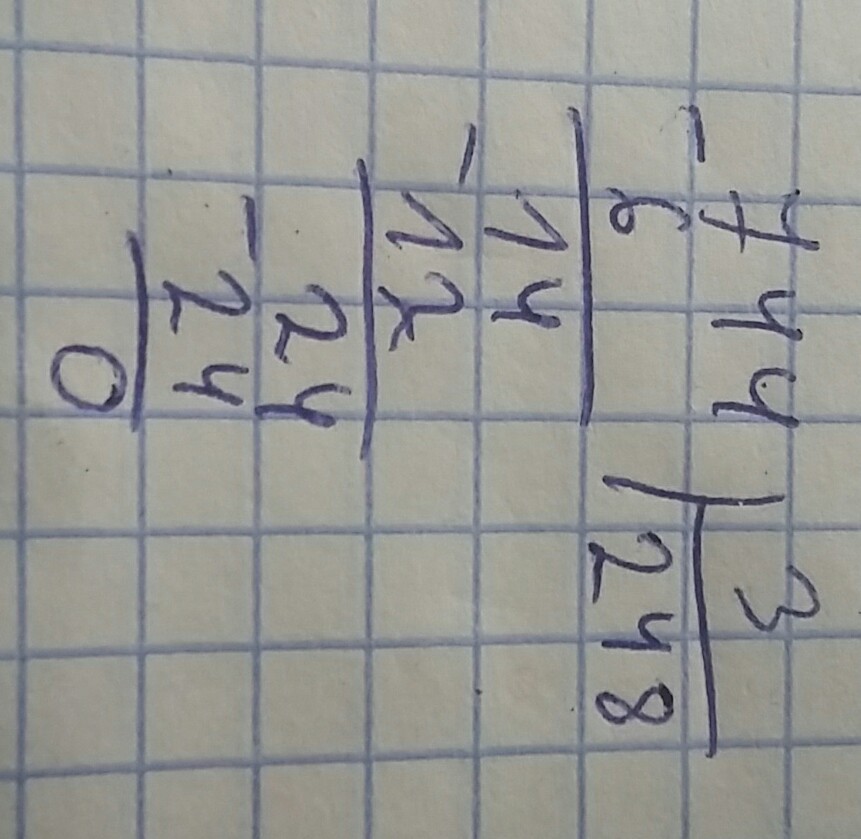 -744 | 3
6 | 248
-14
12
-24
24
0